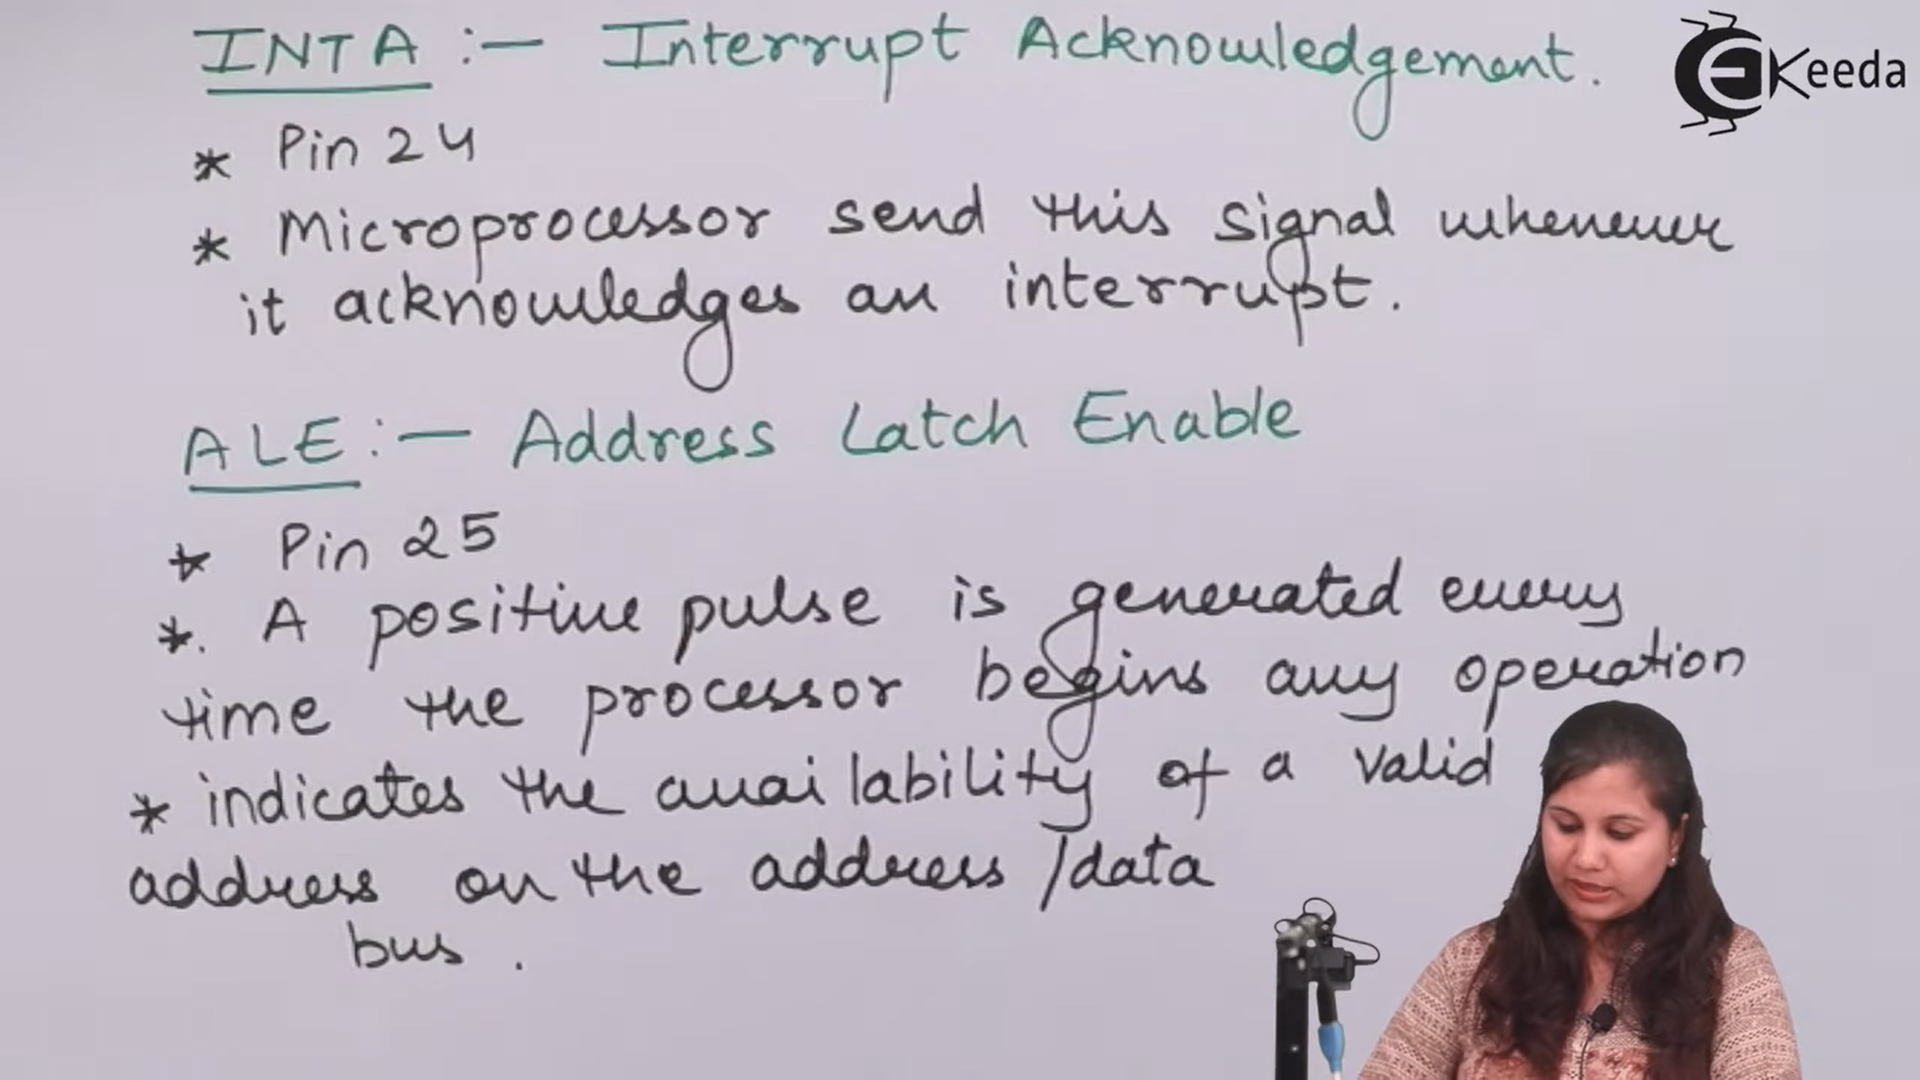 INTA :- Interrupt Acknowledgement.
EKeeda
* Pin 24
* Microprocessor send this signal whenever
it acknowledges an interrupt.
ALE :- Address Latch Enable
* Pin 25
*. A positive pulse is generated every
time the processor begins any operation
* indicates the availability of a valid
address on the address /data
bus .